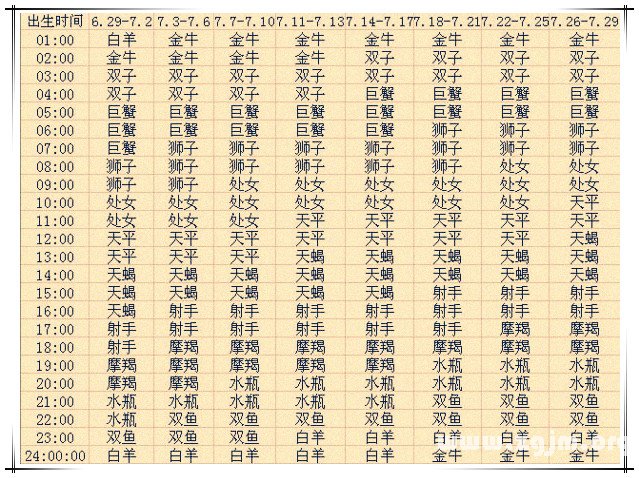 出生时间 6.29-7.2 7.3-7.6 7.7-7.10 7.11-7.13 7.14-7.17 7.18-7.21 7.22-7.25 7.26-7.29
01:00 白羊 金牛 金牛 金牛 金牛 金牛 金牛 金牛
02:00 金牛 金牛 金牛 金牛 双子 双子 双子 双子
03:00 双子 双子 双子 双子 双子 双子 双子 双子
04:00 双子 双子 双子 双子 巨蟹 巨蟹 巨蟹 巨蟹
05:00 巨蟹 巨蟹 巨蟹 巨蟹 巨蟹 巨蟹 巨蟹 巨蟹
06:00 巨蟹 巨蟹 巨蟹 巨蟹 巨蟹 狮子 狮子 狮子
07:00 巨蟹 狮子 狮子 狮子 狮子 狮子 狮子 狮子
08:00 狮子 狮子 狮子 狮子 狮子 狮子 处女 处女
09:00 狮子 狮子 处女 处女 处女 处女 处女 处女
10:00 处女 处女 处女 处女 处女 处女 处女 天平
11:00 处女 处女 处女 天平 天平 天平 天平 天平
12:00 天平 天平 天平 天平 天平 天平 天平 天蝎
13:00 天平 天平 天平 天蝎 天蝎 天蝎 天蝎 天蝎
14:00 天蝎 天蝎 天蝎 天蝎 天蝎 天蝎 天蝎 天蝎
15:00 天蝎 天蝎 天蝎 天蝎 天蝎 射手 射手 射手
16:00 天蝎 射手 射手 射手 射手 射手 射手 射手
17:00 射手 射手 射手 射手 射手 射手 摩羯 摩羯
18:00 射手 摩羯 摩羯 摩羯 摩羯 摩羯 摩羯 摩羯
19:00 摩羯 摩羯 摩羯 摩羯 摩羯 水瓶 水瓶 水瓶
20:00 摩羯 摩羯 水瓶 水瓶 水瓶 水瓶 水瓶 水瓶
21:00 水瓶 水瓶 水瓶 水瓶 水瓶 双鱼 双鱼 双鱼
22:00 水瓶 双鱼 双鱼 双鱼 双鱼 双鱼 双鱼 双鱼
23:00 双鱼 双鱼 双鱼 白羊 白羊 白羊 白羊
24:00:00 白羊 白羊 白羊 白羊 白羊 金牛 金牛 金牛